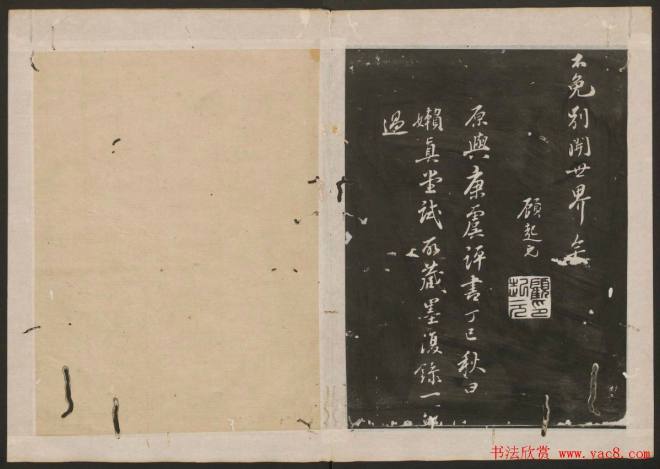 不免別開世界矣
顧起元
顧起元印
原與康虞評書丁巳秋日
嬾真堂試所藏墨復錄一
過
书法欣赏 www.yac8.com